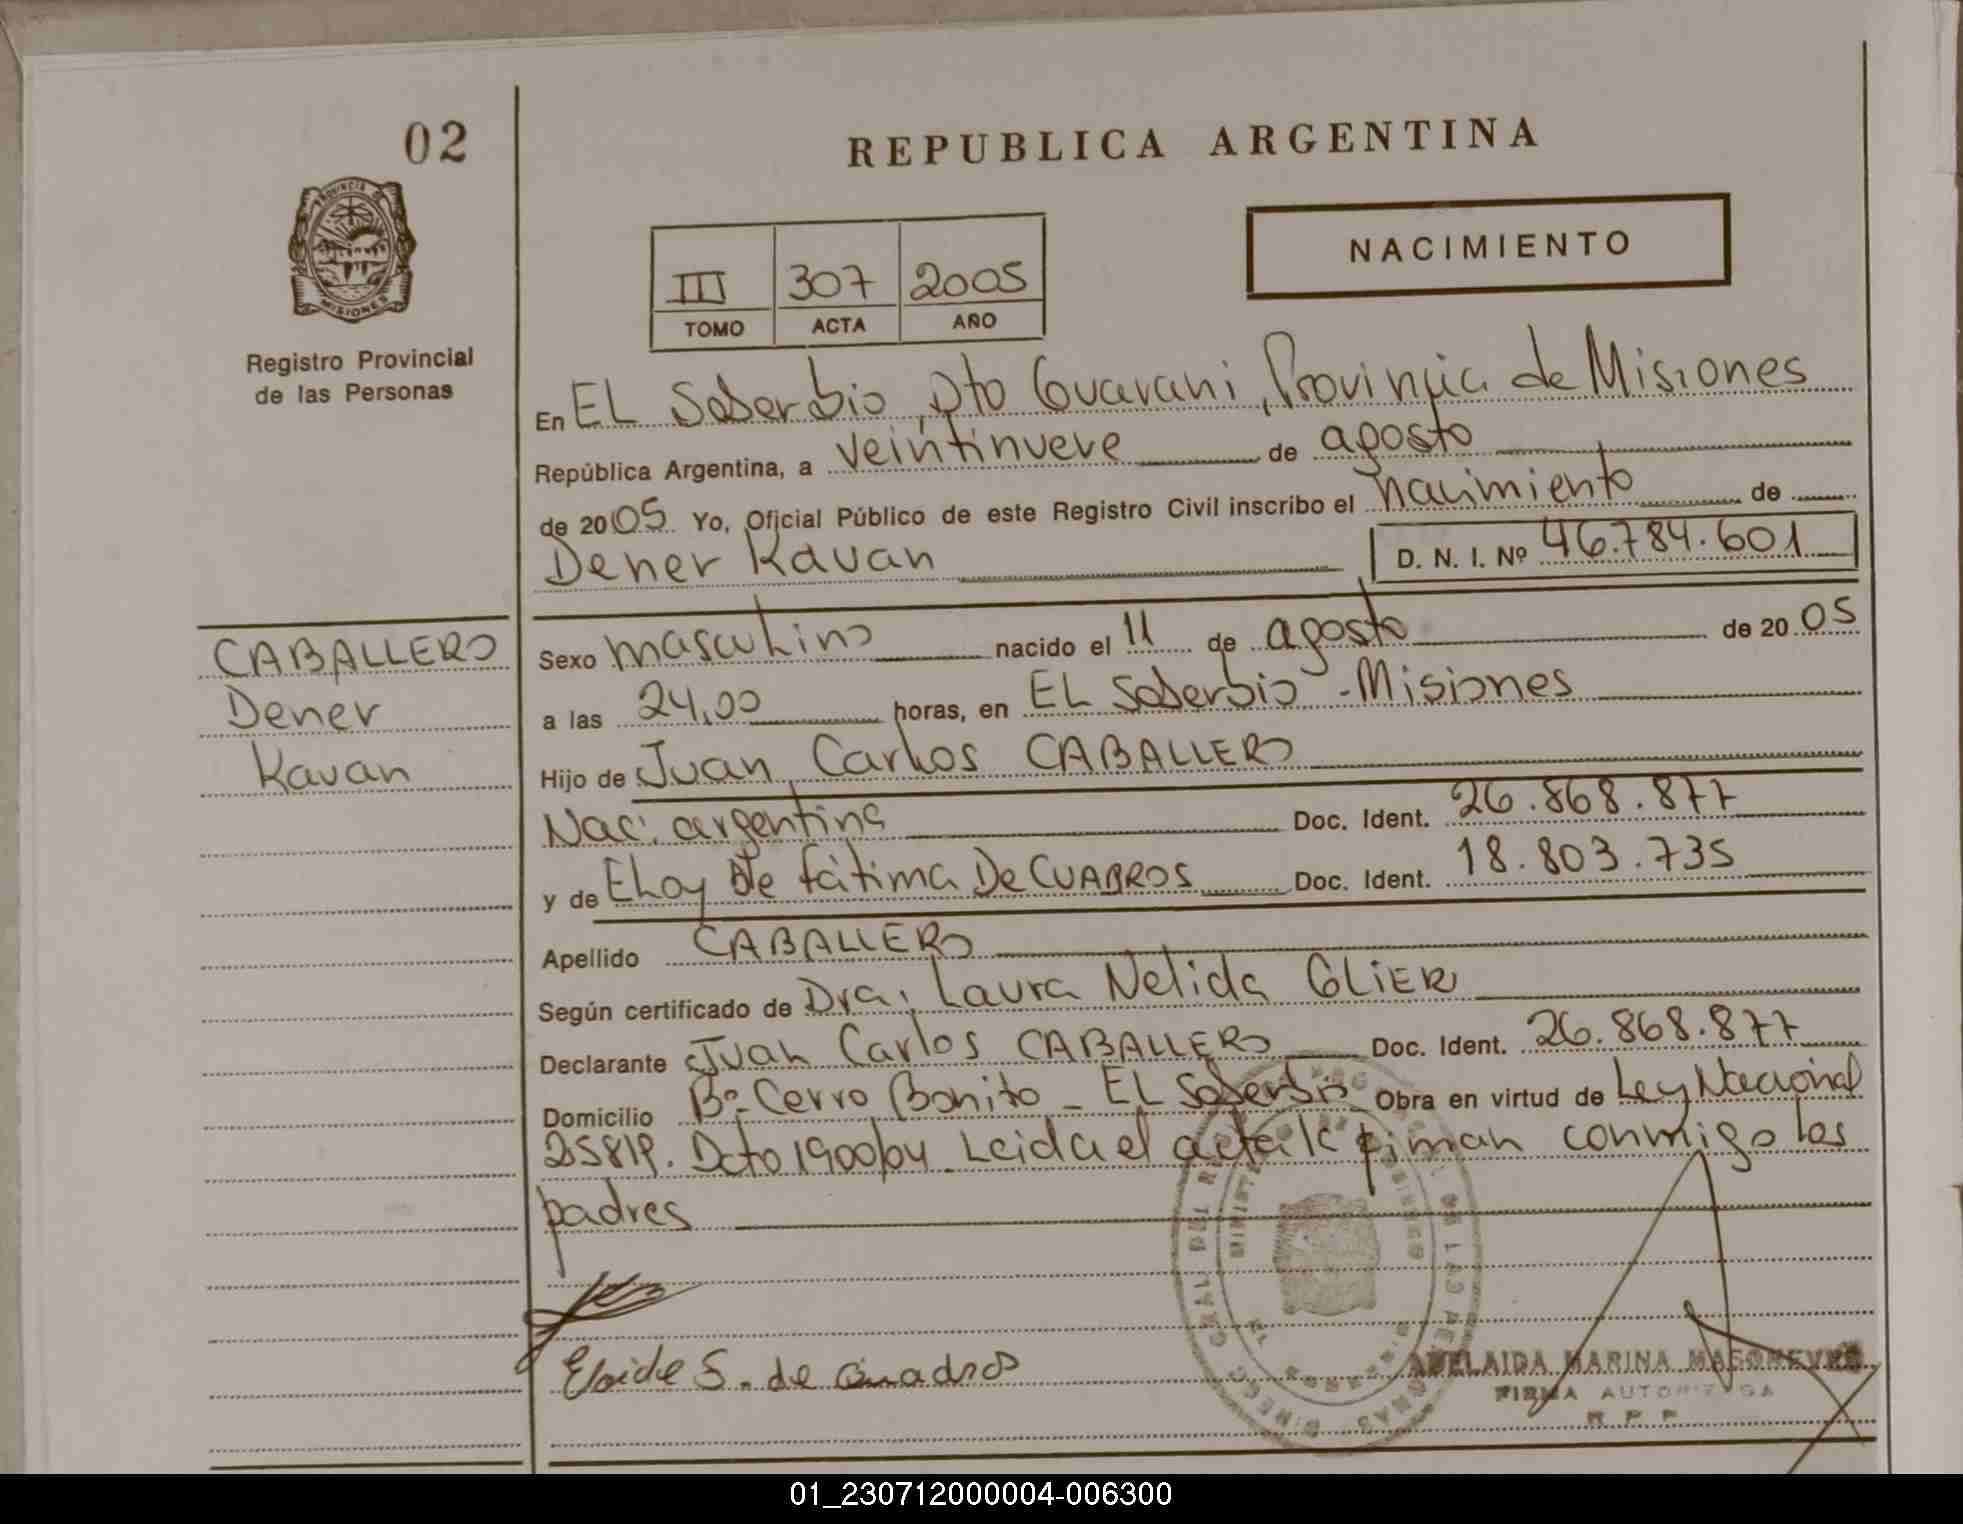 02
PROVINCIA DE
MISIONES
Registro Provincial
de las Personas
REPUBLICA ARGENTINA
NACIMIENTO
III 307 2005
TOMO ACTA AÑO
En EL Soberbio, Dto Guarani, Provincia de Misiones
República Argentina, a veintinueve de agosto
de 2005 Yo, Oficial Público de este Registro Civil inscribo el nacimiento de
Dener Kavan D. N. I. Nº 46.784.601
CABALLERO
Dener
Kavan
Sexo masculino nacido el 11 de agosto de 2005
a las 24,00 horas, en EL Soberbio - Misiones
Hijo de Juan Carlos CABALLERO
Nac: argentina Doc. Ident. 26.868.877
y de Eloy de Fátima De CUADROS Doc. Ident. 18.803.735
Apellido CABALLERO
Según certificado de Dra. Laura Nelida GLIER
Declarante Juan Carlos CABALLERO Doc. Ident. 26.868.877
Domicilio Bº Cerro Bonito - EL Soberbio Obra en virtud de Ley Nacional
25819. Dcto 1900/04. Leida el acta la firman conmigo los
padres
de Quadros
ADELAIDA MARINA
FIRMA AUTORIZADA
R P P
01_230712000004-006300